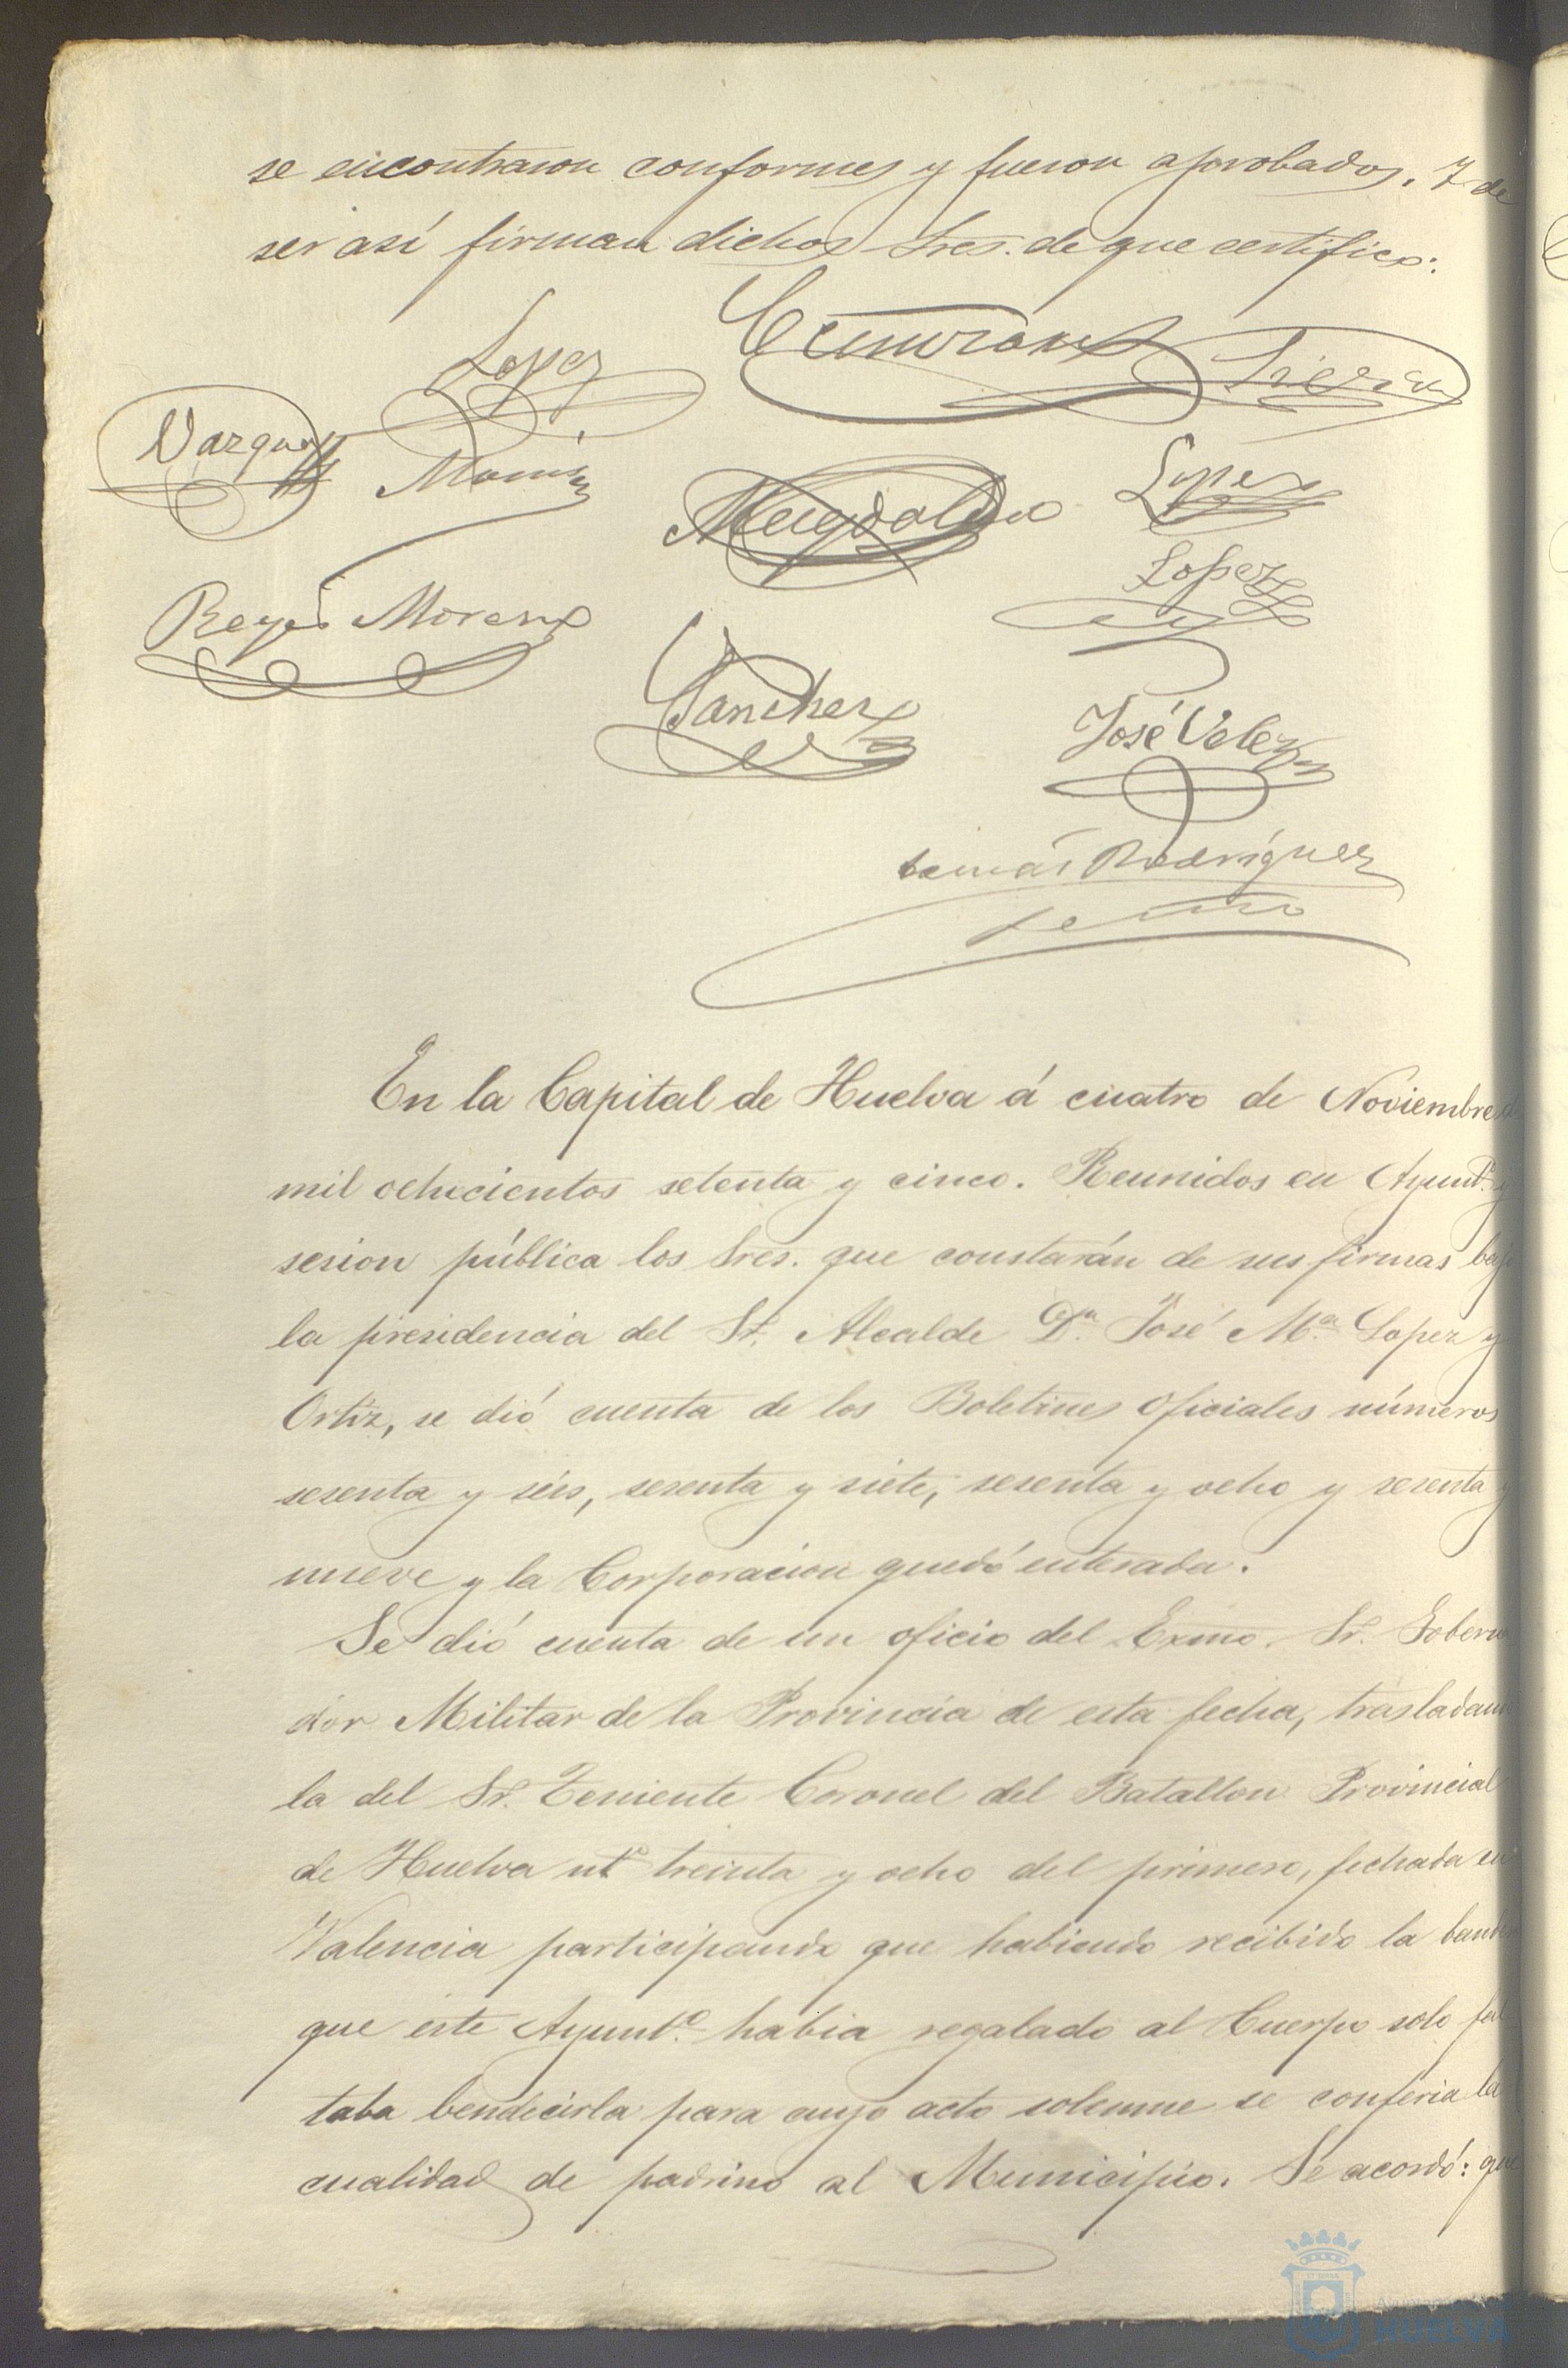 se encontraron conformes y fueron aprobados. Y de
ser así firman dichos Sres. de que certifico:
Lopez
Vazquez
Lopez
Lopez
Reyes Moreno
Sanchez
José Velez
tomás Rodriguez
En la Capital de Huelva á cuatro de Noviembre
mil ochocientos setenta y cinco. Reunidos en Ayunt.º y
sesion pública los Sres. que constarán de sus firmas bajo
la presidencia del Sr. Alcalde Dn. José Mª Lopez y
Ortiz, se dió cuenta de los Boletines Oficiales números
sesenta y seis, sesenta y siete, sesenta y ocho y sesenta y
nueve y la Corporacion quedó enterada.
Se dió cuenta de un oficio del Exmo. Sr. Goberna
dor Militar de la Provincia de esta fecha, trasladan
la del Sr. Teniente Coronel del Batallon Provincial
de Huelva nº treinta y ocho del primero, fechada en
Valencia participando que habiendo recibido la band
que este Ayunt.º habia regalado al Cuerpo solo fal
taba bendecirla para cuyo acto solemne se conferia la
cualidad de padrino al Municipio. Se acordó: que
HUELVA